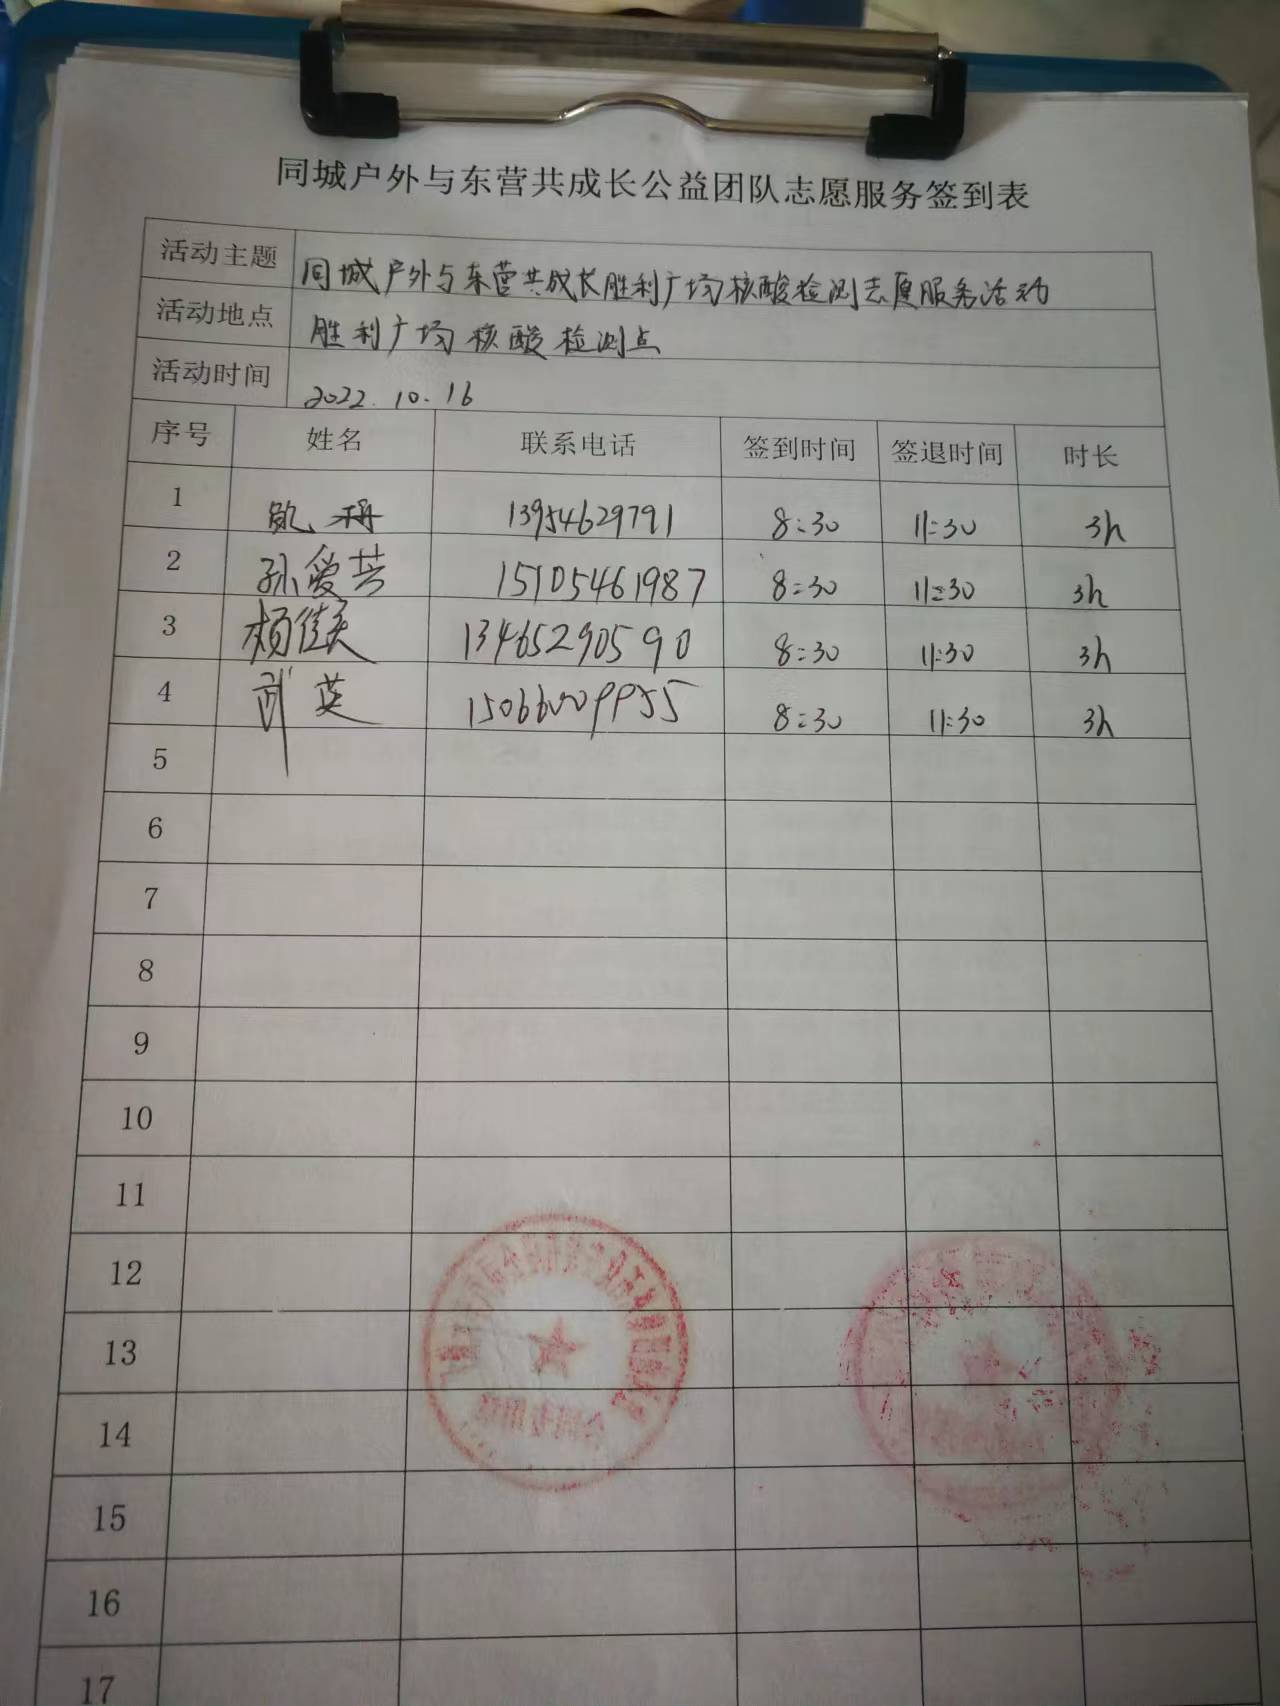 同城户外与东营共成长公益团队志愿服务签到表
活动主题 同城户外与东营共成长胜利广场核酸检测志愿服务活动
活动地点 胜利广场核酸检测点
活动时间 2022.10.16
序号 姓名 联系电话 签到时间 签退时间 时长
1 13954629791 8:30 11:30 3h
2 孙爱芸 15105461987 8:30 11:30 3h
3 杨佳美 13465290590 8:30 11:30 3h
4 武英 15066009955 8:30 11:30 3h
5
6
7
8
9
10
11
12
13
14
15
16
17